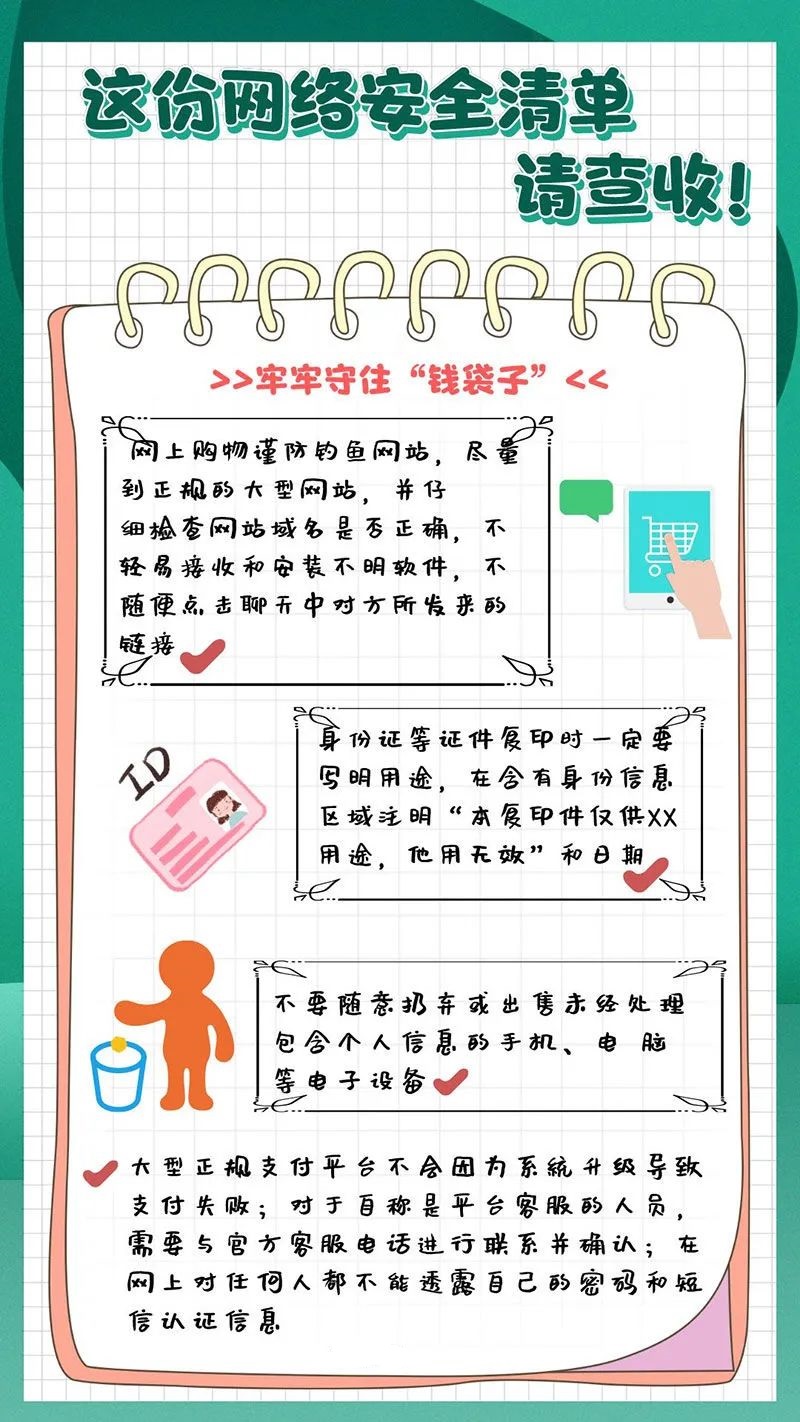 这份网络安全清单
请查收!
>>牢牢守住“钱袋子”<<
网上购物谨防钓鱼网站，尽量
到正规的大型网站，并仔
细检查网站域名是否正确，不
轻易接收和安装不明软件，不
随便点击聊天中对方所发来的
链接
ID
身份证等证件复印时一定要
写明用途，在含有身份信息
区域注明“本复印件仅供XX
用途，他用无效”和日期
不要随意扔弃或出售未经处理
包含个人信息的手机、电 脑
等电子设备
大型正规支付平台不会因为系统升级导致
支付失败；对于自称是平台客服的人员，
需要与官方客服电话进行联系并确认；在
网上对任何人都不能透露自己的密码和短
信认证信息